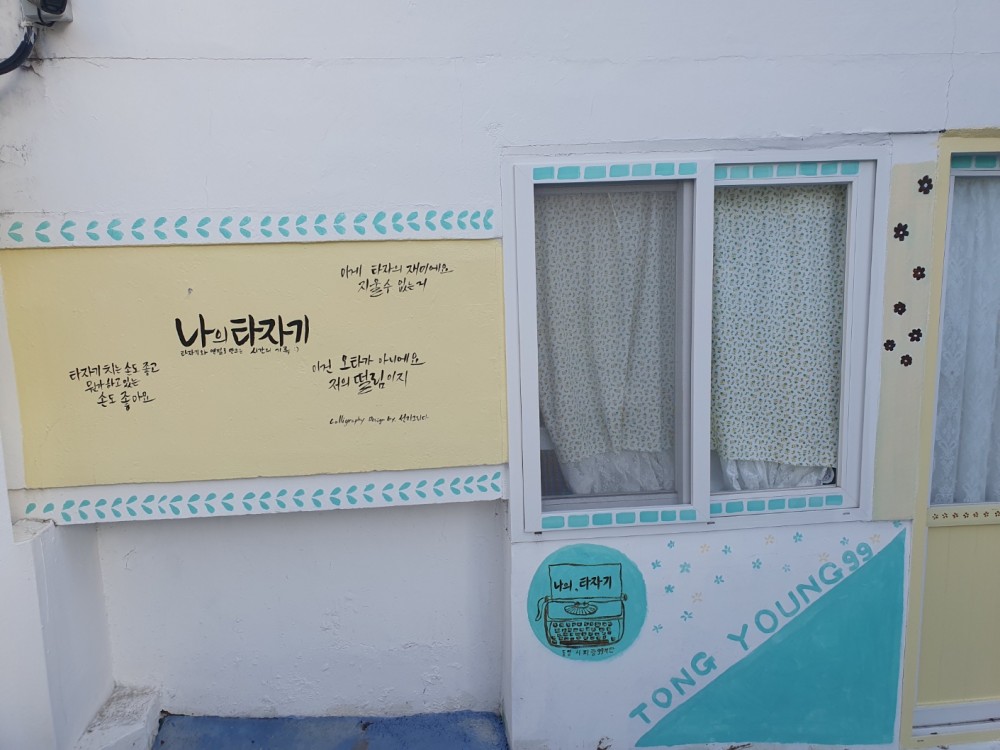 이게 타자의 재미에요
지울 수 있는거
나의 타자기
타자기 치는 손도 좋고
뭔가 하고 있는
손도 좋아요
이건 오타가 아니에요
저의 떨림이지
Calligraphy Design by
나의 타자기
TONG YOUNG 99